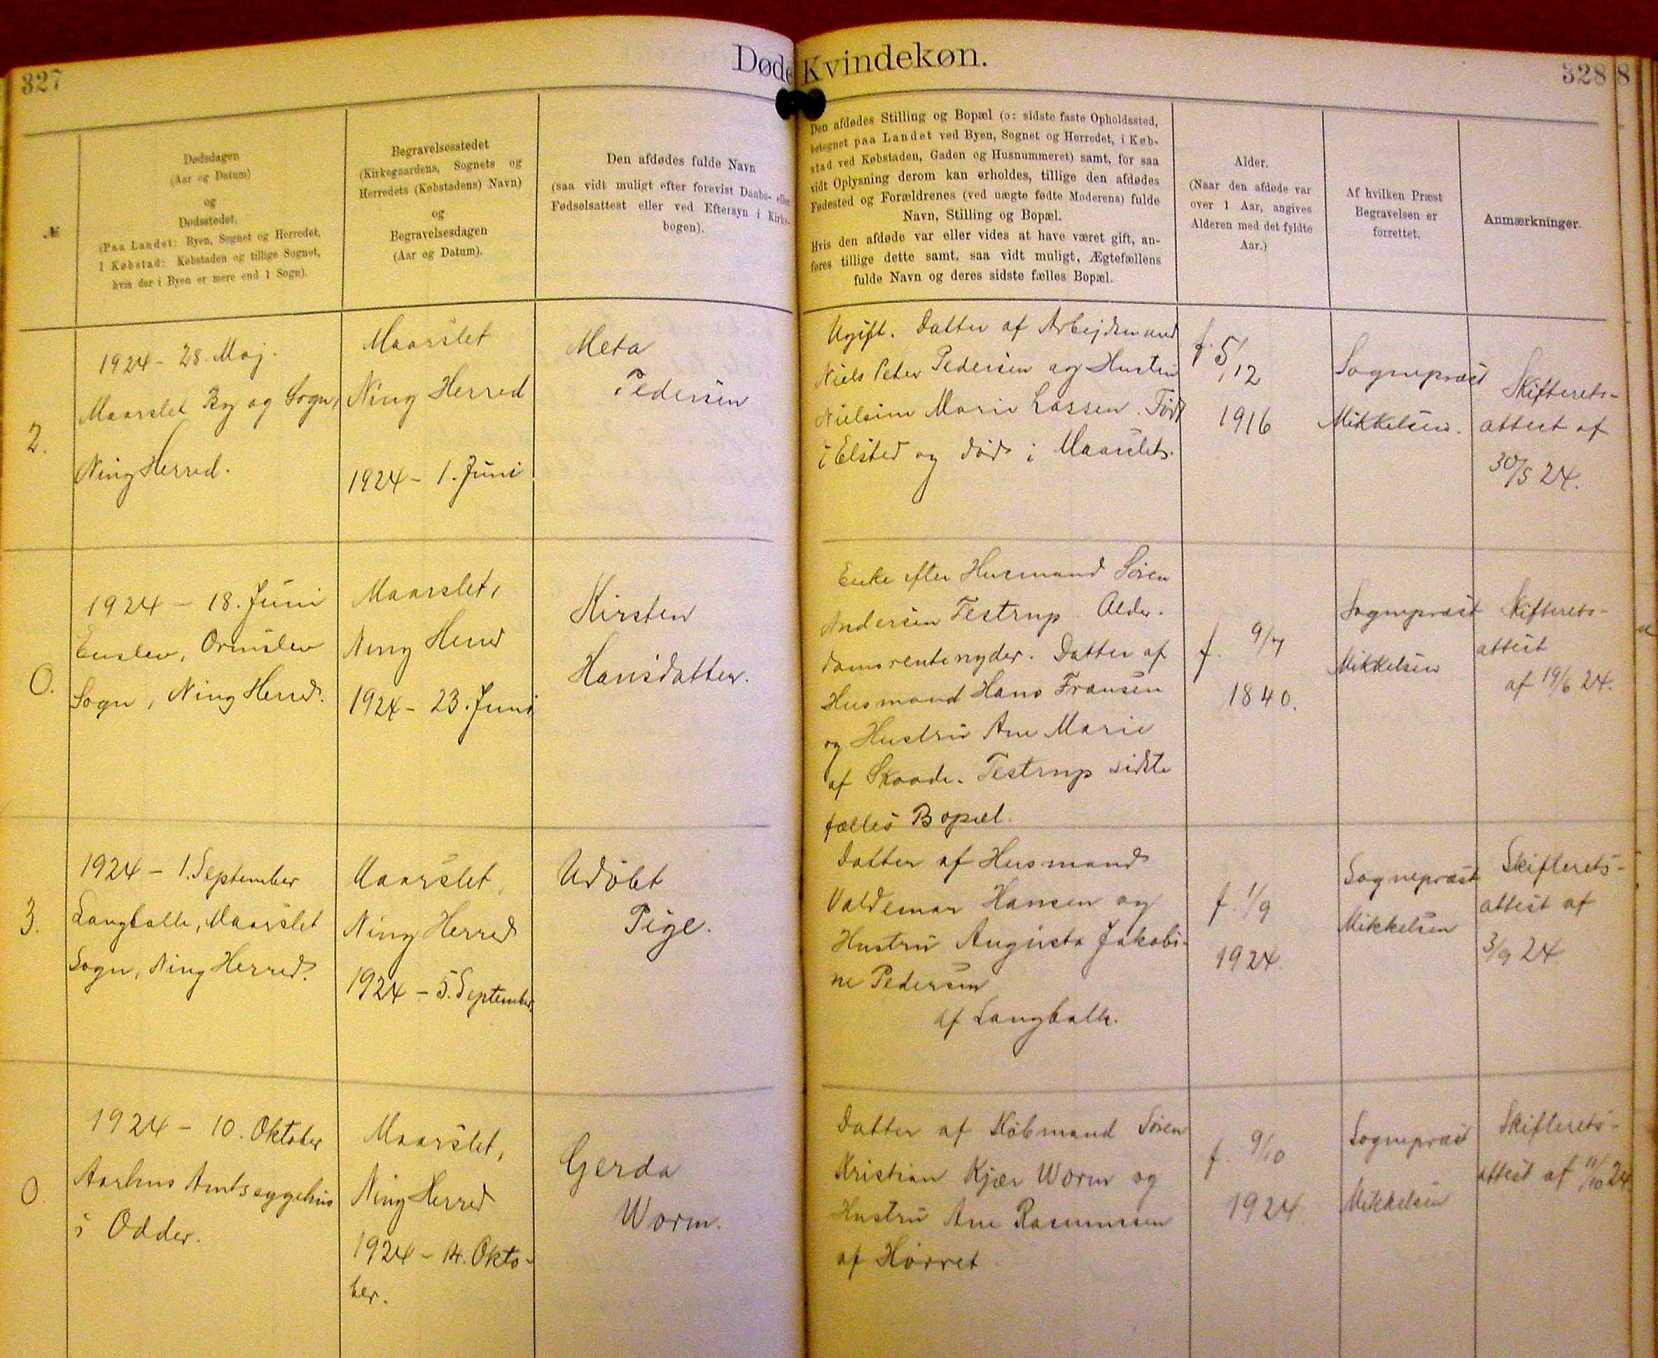 327
Døde Kvindekøn.
328
8
№
Dødsdagen
(Aar og Datum)
og
Dødsstedet.
(Paa Landet: Byen, Sognet og Herredet,
I Købstad: Købstaden og tillige Sognet,
hvis der i Byen er mere end 1 Sogn).
Begravelsesstedet
(Kirkegaardens, Sognets og
Herredets (Købstadens) Navn)
og
Begravelsesdagen
(Aar og Datum).
Den afdødes fulde Navn
(saa vidt muligt efter forevist Daabs- eller
Fødselsattest eller ved Eftersyn i Kirke-
bogen).
Den afdødes Stilling og Bopæl (ɔ: sidste faste Opholdssted,
betegnet paa Landet ved Byen, Sognet og Herredet, i Køb-
stad ved Købstaden, Gaden og Husnummeret) samt, for saa
vidt Oplysning derom kan erholdes, tillige den afdødes
Fødested og Forældrenes (ved uægte fødte Moderens) fulde
Navn, Stilling og Bopæl.
Hvis den afdøde var eller vides at have været gift, an-
føres tillige dette samt, saa vidt muligt, Ægtefællens
fulde Navn og deres sidste fælles Bopæl.
Alder.
(Naar den afdøde var
over 1 Aar, angives
Alderen med det fyldte
Aar.)
Af hvilken Præst
Begravelsen er
forrettet.
Anmærkninger.
2.
1924 - 28. Maj.
Maarslet By og Sogn,
Ning Herred.
Maarslet
Ning Herred
1924 - 1. Juni
Meta
Pedersen
Ugift. Datter af Arbejdsmand
Niels Peter Pedersen og Hustru
Nielsine Marie Lassen. Født
i Elsted og død i Maarslet.
f. 5/12
1916
Sognepræst
Mikkelsen.
Skifterets-
attest af
30/5 24.
0.
1924 - 18. Juni
Enslev, Ormslev
Sogn, Ning Herred.
Maarslet,
Ning Herred
1924 - 23. Juni
Kirsten
Hansdatter.
Enke efter Husmand Søren
Andersen Testrup. Alder-
domsrentenyder. Datter af
Husmand Hans Fransen
og Hustru Ane Marie
af Skaade. Testrup sidste
fælles Bopæl.
f. 9/7
1840.
Sognepræst
Mikkelsen
Skifterets-
attest
af 19/6 24.
3.
1924 - 1. September
Langballe, Maarslet
Sogn, Ning Herred.
Maarslet,
Ning Herred
1924 - 5. September
Udøbt
Pige.
Datter af Husmand
Valdemar Hansen og
Hustru Augusta Jakobi-
ne Pedersen
af Langballe.
f. 1/9
1924.
Sognepræst
Mikkelsen
Skifterets-
attest af
3/9 24
0.
1924 - 10. Oktober
Aarhus Amtssygehus
i Odder.
Maarslet,
Ning Herred
1924 - 14. Okto-
ber.
Gerda
Worm.
Datter af Købmand Søren
Kristian Kjær Worm og
Hustru Ane Rasmussen
af Hørret
f. 9/10
1924.
Sognepræst
Mikkelsen
Skifterets-
attest af 11/10 24.